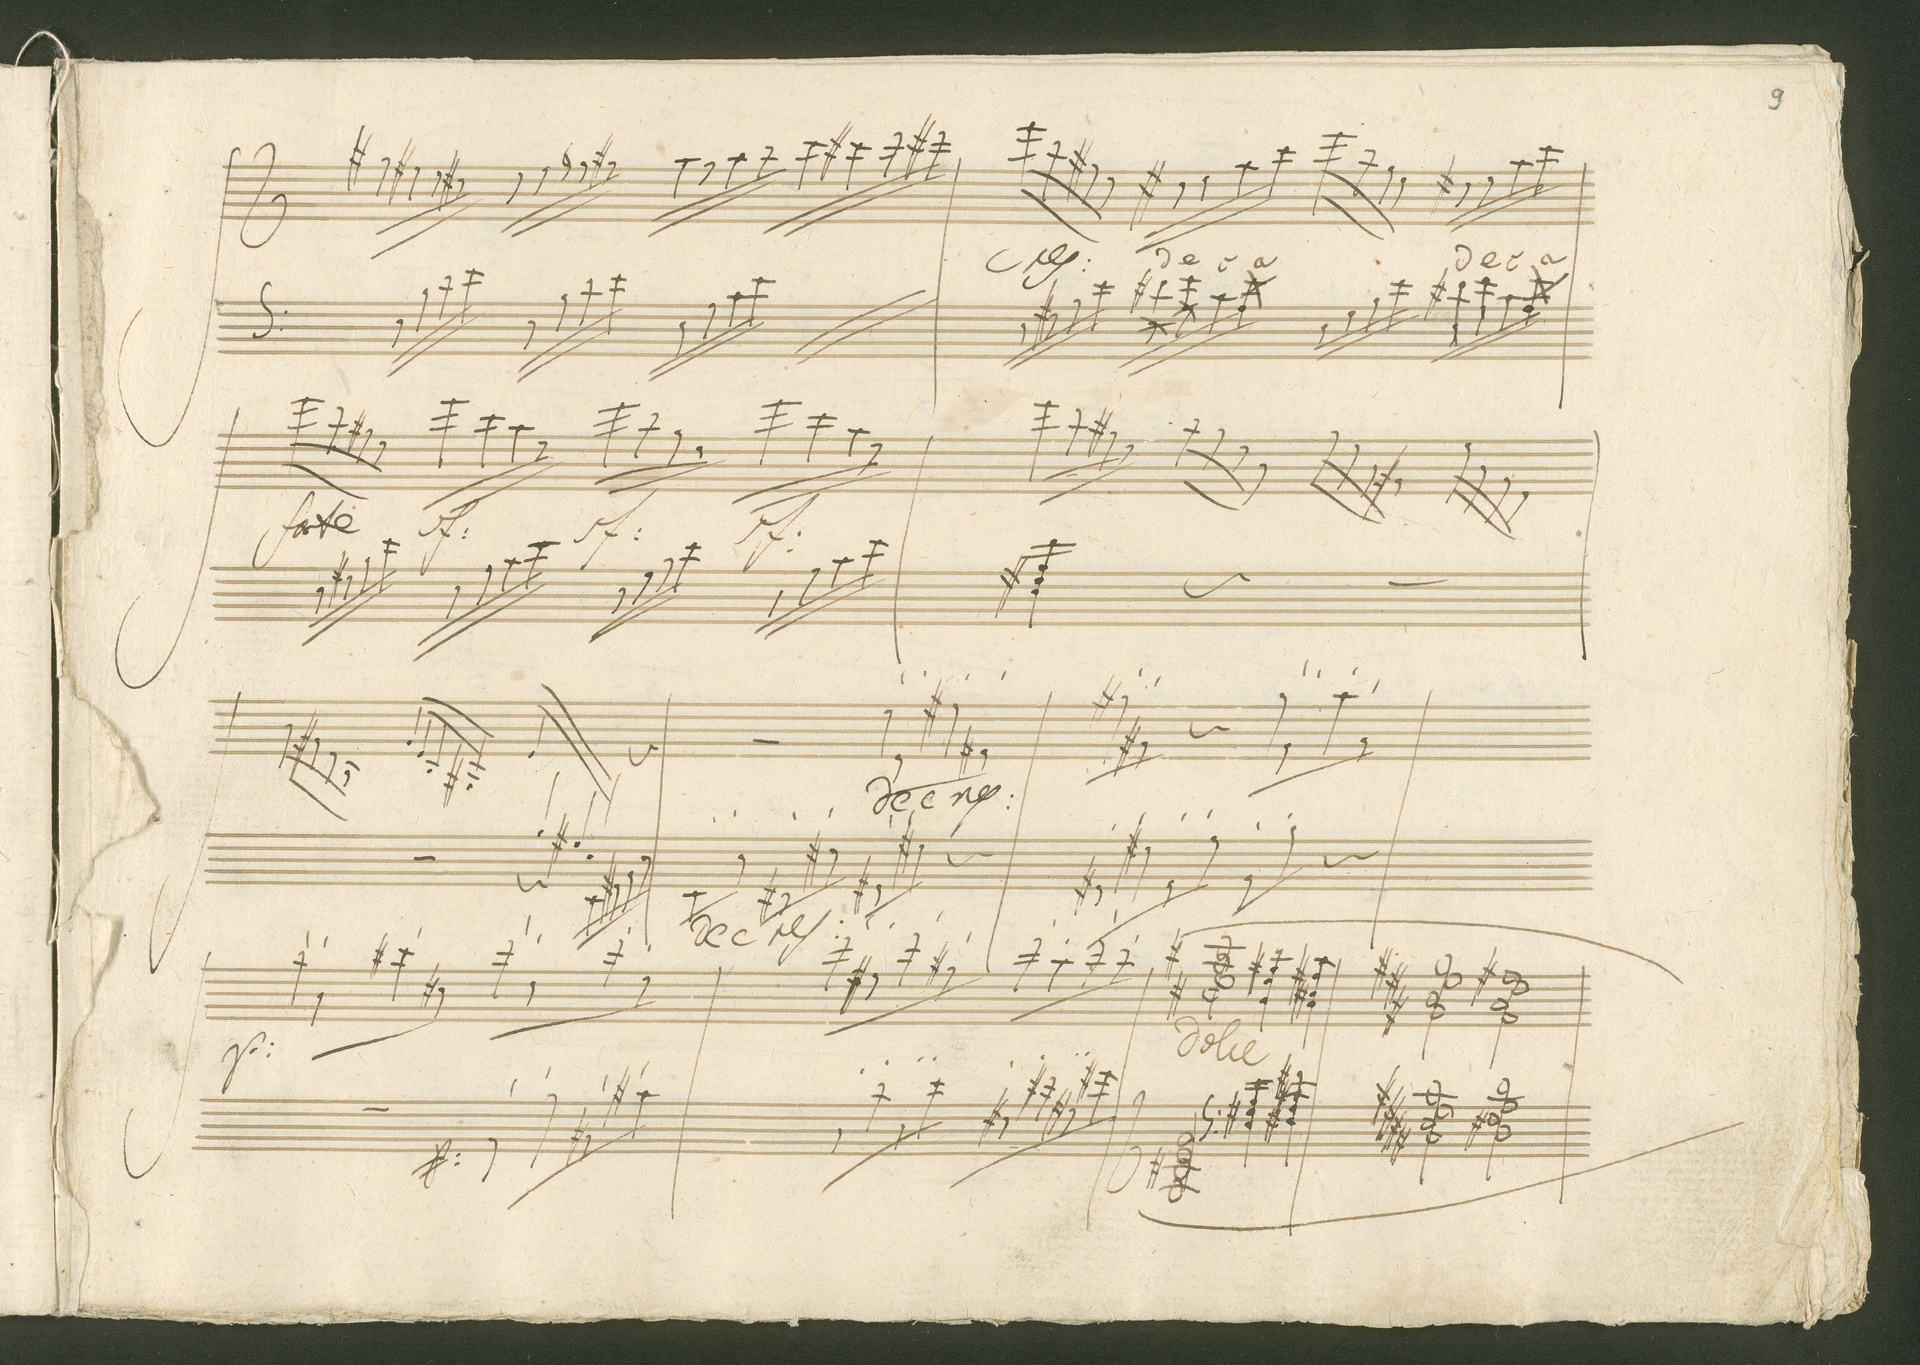 9
cres:
d e c a
d e c a
forte sf: sf: sf:
decres:
decres:
p:
dolce
p: